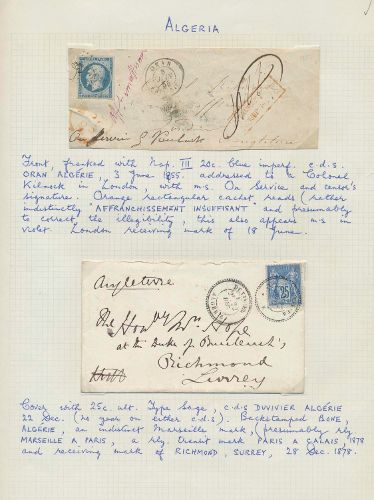 ALGERIA
ORAN
On Service
Angleterre
Front, franked with Nap. III 20c. blue imperf. c.d.s.
ORAN ALGÉRIE, 3 June 1855. addressed to a Colonel
in London, with m.s. On Service and sender's
signature. Orange rectangular cachet reads (rather
indistinctly) AFFRANCHISSEMENT INSUFFISANT and presumably
to correct the illegibility, this also appears m.s in
violet. London receiving mark of 18 June.
Angleterre
25
The Honble Mrs Hope
at the Duke of Buccleuch's
Richmond
Surrey
Cover with 25c. ult. Type Sage, c.d.s DUVIVIER ALGÉRIE
22 Dec. (no year on either c.d.s). Backstamped BONE,
ALGÉRIE, an indistinct Marseille mark, (presumably rly.
MARSEILLE A PARIS, a rly. transit mark PARIS A CALAIS, 1878
and receiving mark of RICHMOND, SURREY, 28 Dec. 1878.